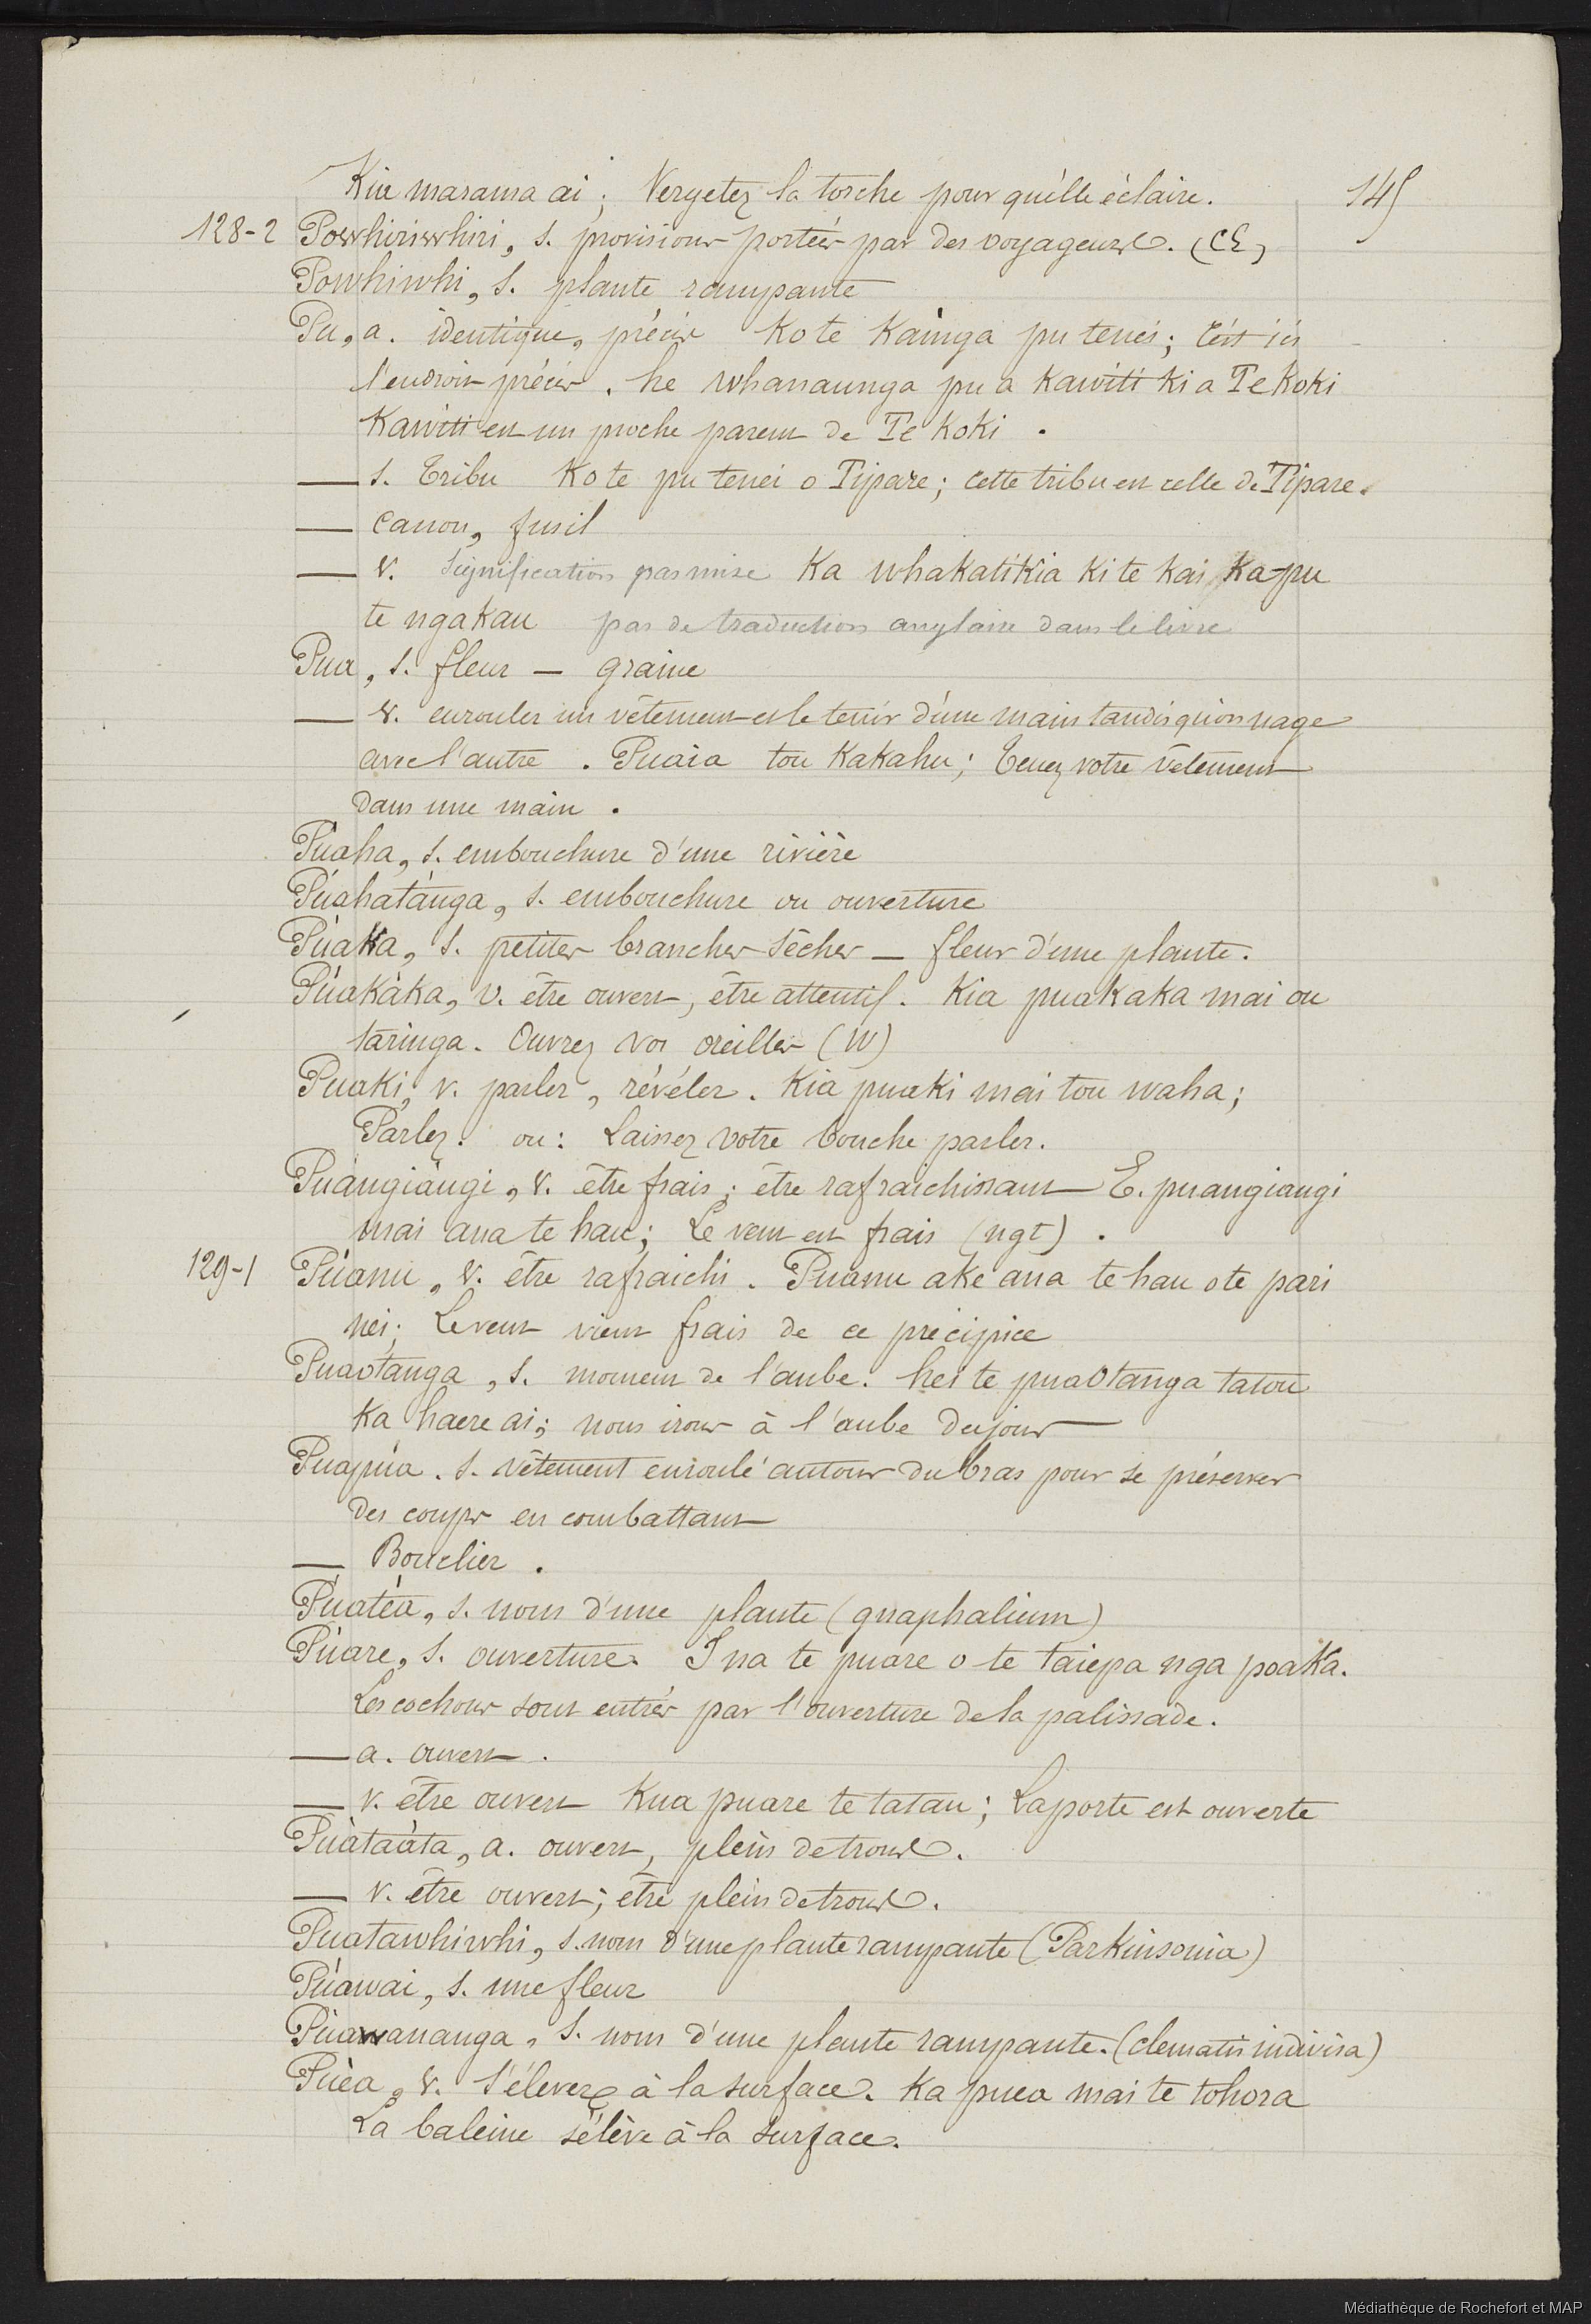 Kia marama ai; Vergetez la torche pour qu'elle éclaire.
145
128-2 Powhiriwhiri, s. provisions portées par des voyageurs. (CE)
Powhiwhi, s. plante rampante
Pu, a. identique, précis Ko te Kainga pu tenei; C'est ici
l'endroit précis. he whanaunga pu a Kawiti ki a Te Koki
Kawiti est un proche parent de Te Koki.
— s. Tribu Ko te pu tenei o Tipare; cette tribu est celle de Tipare.
— Canon, fusil
— v. Signification pas mise Ka whakatikia ki te kai ka pu
te ngakau pas de traduction anglaise dans le livre
Pua, s. fleur — graine
— v. enrouler un vêtement et le tenir d'une main tandis qu'on nage
avec l'autre. Puaia tou Kakahu; Tenez votre vêtement
dans une main.
Púaha, s. embouchure d'une rivière
Púahatánga, s. embouchure ou ouverture
Púaka, s. petites branches sèches — fleur d'une plante.
Púakáka, v. être ouvert, être attentif. Kia puakaka mai ou
taringa. Ouvrez vos oreilles (W)
Puaki, v. parler, révéler. Kia puaki mai tou waha;
Parlez. ou: Laissez votre bouche parler.
Puangiàngi, v. être frais; être rafraichissant E. puangiangi
mai ana te hau; Le vent est frais (ngt).
129-1 Púanu, v. être rafraichi. Puanu ake ana te hau o te pari
nei; Le vent vient frais de ce précipice
Puaotanga, s. moment de l'aube. hei te puaotanga tatou
ka haere ai; nous irons à l'aube du jour
Puapúa. s. vêtement enroulé autour du bras pour se préserver
des coups en combattant
— Bouclier.
Púatéa, s. nom d'une plante (gnaphalium)
Púare, s. ouverture. I na te puare o te taiepa nga poaka.
Les cochons sont entrés par l'ouverture de la palissade.
— a. ouvert.
— v. être ouvert Kua puare te tatau; La porte est ouverte
Púataàta, a. ouvert, plein de trous.
— v. être ouvert; être plein de trous.
Puatawhiwhi, s. nom d'une plante rampante (Parkinsonia)
Púawai, s. une fleur
Púawananga, s. nom d'une plante rampante. (clematis indivisa)
Púèa, v. S'élever à la surface. Ka puea mai te tohora
La baleine s'élève à la surface.
Médiathèque de Rochefort et MAP